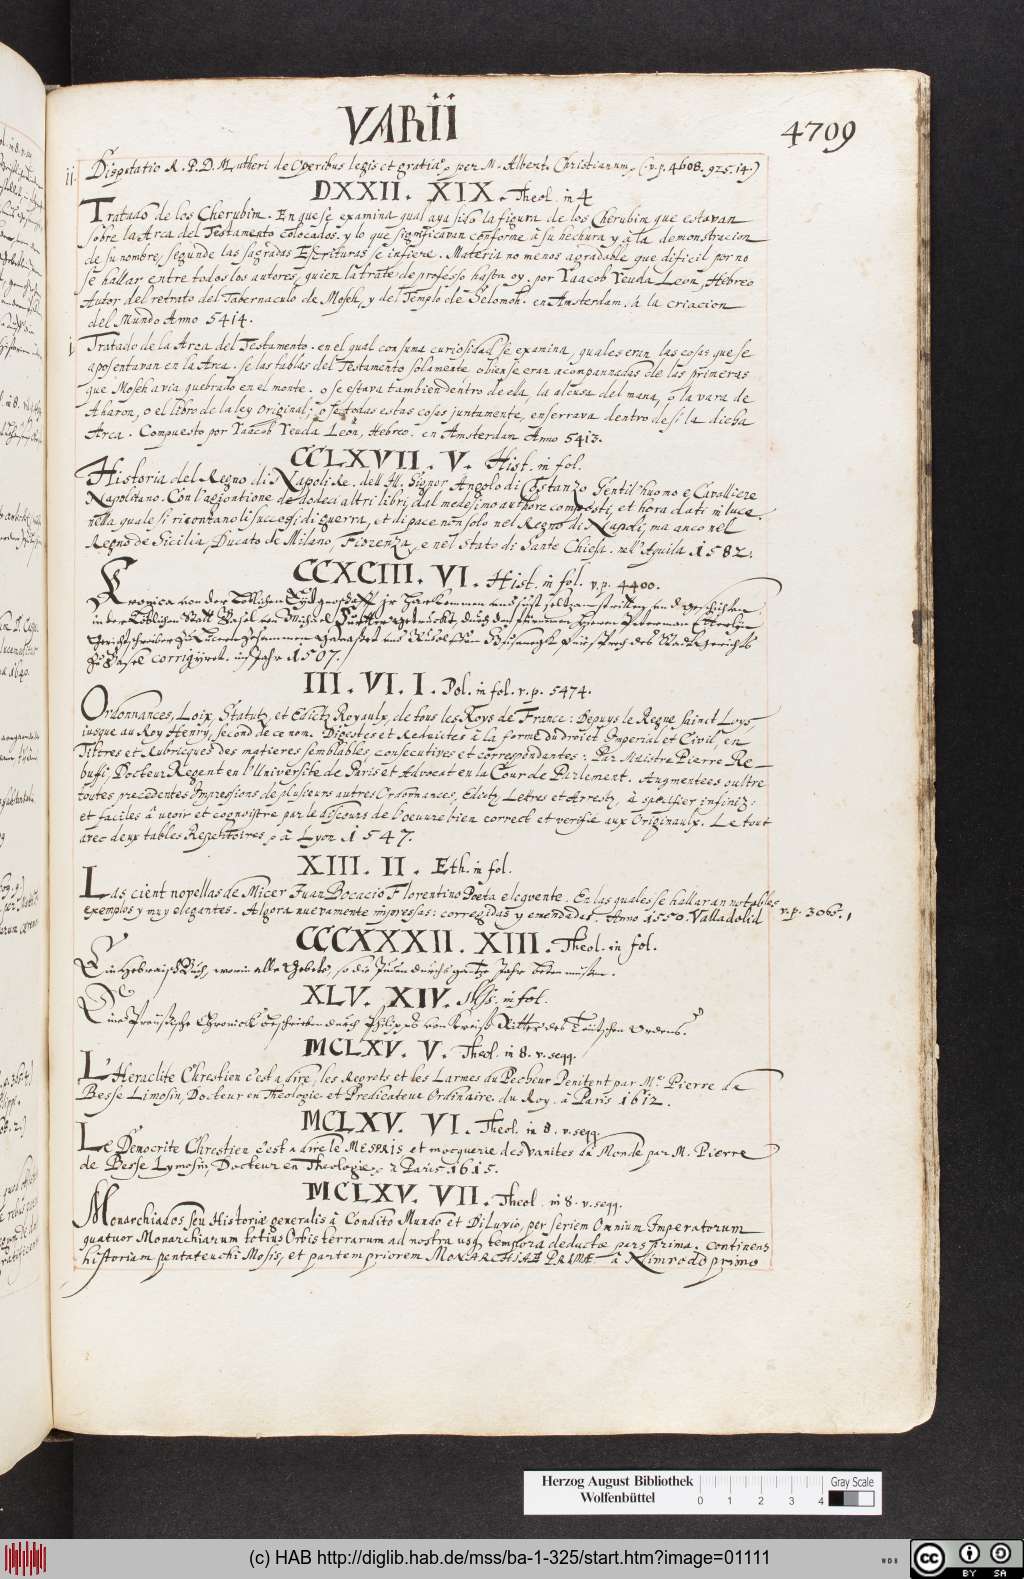 VARII
4709
ii. Disputatio R. P. D. M. Lutheri de Operibus legis et gratiæ, per M. Albert. Christianum. (v. p. 4608. 925. 14.)
DXXII. XIX. Theol. in 4
Tratado de los Cherubim. En que se examina qual aya sido la figura de los Cherubim que estavan
sobre la Arca del Testamento colocados. y lo que significavan conforme à su hechura y à la demonstracion
de su nombre, segunde las sagradas Escrituras se infiere. Materia no menos agradable que dificil por no
se hallar entre todos los autores, quien la trate de professo hasta oy, por Yaacob Yeuda Leon, Hebreo
Autor del retrato del Tabernaculo de Moseh, y del Templo de Selomoh. en Amsterdam. à la criacion
del Mundo Anno 5414.
i Tratado de la Arca del Testamento. en el qual con suma curiosidad se examina, quales eran las cosas que se
aposentavan en la Arca. se las tablas del Testamento solamente obien se eran acompannadas de las primeras
que Moseh avia quebrado en el monte. o se estava tambien dentro de ella, la alcusa del mana, o la vara de
Aharon, o el libro de la ley original; o se todas estas cosas juntamente, enserrava dentro de si la dicha
Arca. Compuesto por Yaacob Yeuda Leon, Hebreo. en Amsterdam Anno 5413.
CCLXVII. V. Hist. in fol.
Historia del Regno di Napoli Re. dell Ill. Signor Angolo di Costanzo Gentil'huomo e Cavalliere
Napolitano. Con l'agiontione de dodeci altri libri, dal medesimo authore composti, et hora dati in luce.
nella quale si racontano li successi di guerra, et di pace non solo nel Regno di Napoli, ma anco nel
Regno de Sicilia, Ducato de Milano, Fiorenza, e nel stato di Sante Chiesa. nell'Aquila 1582.
CCXCIII. VI. Hist. in fol. v. p. 4400.
Kronica von der Loblichen Eydgnoschafft jr Harkommen und sust seltzam stritten und geschichten
in der Loblichen Statt Basel von Michael Furtter getruckt, durch den furnemen Herren Peterman Etterlin
Gerichtschreiber zu Lucern zesammen
zu Basel corrigijret. ins Jahr 1507.
III. VI. 1. Pol. in fol. v. p. 5474.
Ordonnances, Loix, Statutz, et Edictz Royaulx, de tous les Roys de France: Depuys le Regne sainct Loys,
iusque au Roy Henry, second de ce nom. Digestes et Reduictes à la forme du droict Imperial et Civil, en
Tiltres et Rubricques des matieres semblables, consecutives et correspondantes: Par Maistre Pierre Re-
buffi, Docteur Regent en l'Universite de Paris et Advocat en la Cour de Parlement. Augmentees oultre
toutes precedentes Impressions, de plusieurs autres Ordonnances, Edictz Lettres et Arrestz, à specifier infiniz:
et faciles à veoir et cognoistre par le discours de l'oeuvre bien correct et verifié aux Originaulx. Le tout
avec deux tables Repertoires, à Lyon 1547.
XIII. II. Eth. in fol.
Las cient novellas de Micer Juan Bocacio Florentino Poeta eloquente. En las quales se hallaran notables
exemplos y muy elegantes. Agora nuevamente impressas: corregidas y emendadas. Anno 1550. Valladolid v. p. 3065. 1
CCCXXXII. XIII. Theol. in fol.
Ein Hebreisch Buch, worin alle Gebete, so die Juden durchs gantze Jahr beten müssen.
XLV. XIV. Mss. in fol.
Eine Preussische Chronick beschrieben durch Philippus von Creutz Ritter des Teutschen Ordens.
MCLXV. V. Theol. in 8. v. seqq.
L'Heraclite Chrestien c'est a dire, les Regrets et les Larmes du Pecheur Penitent par Mr. Pierre de
Besse Limosin, Docteur en Theologie et Predicateur Ordinaire du Roy. à Paris 1612.
MCLXV. VI. Theol. in 8. v. seqq.
Le Democrite Chrestien c'est a dire le Mespris et mocquerie des Vanites du Monde par M. Pierre
de Besse Lymosin, Docteur en Theologie, a Paris 1615.
MCLXV. VII. Theol. in 8. v. seqq.
Monarchiados seu Historiæ generalis à Condito Mundo et Diluvio, per seriem Omnium Imperatorum
quatuor Monarchiarum totius Orbis terrarum ad nostra usq, tempora deductæ pars prima. continens
historiam pentateuchi Mosis, et partem priorem MONARCHIAE PRIMÆ à Nimrodo primo
Herzog August Bibliothek
Wolfenbüttel
0 1 2 3 4
Gray Scale
(c) HAB http://diglib.hab.de/mss/ba-1-325/start.htm?image=01111
WDB
cc BY SA